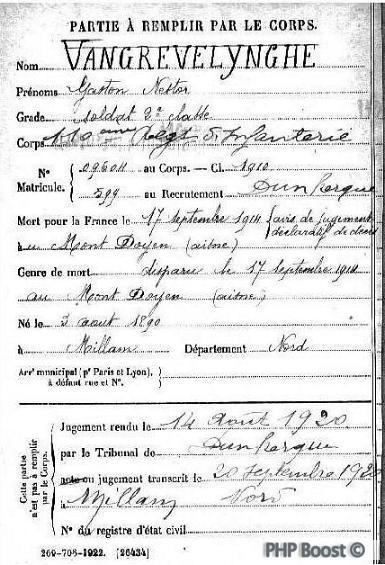 PARTIE À REMPLIR PAR LE CORPS.
Nom VANGREVELYNGHE
Prénoms Gaston Nestor
Grade soldat 2e classe
Corps 110 eme Regt d'Infanterie
N° Matricule. { 09601 au Corps. — Cl. 1910
299 au Recrutement Dunkerque
Mort pour la France le 17 septembre 1914 (avis de jugement
déclaratif de décès
au Mont Doyen (aisne)
Genre de mort disparu le 17 septembre 1914
au Mont Doyen (aisne)
Né le 3 aout 1890
à Millam Département Nord
Arrt municipal (pr Paris et Lyon),
à défaut rue et N°.
Cette partie n'est pas à remplir par le Corps.
Jugement rendu le 14 Août 1920
par le Tribunal de Dunkerque
acte ou jugement transcrit le 20 septembre 1920
à Millam Nord
N° du registre d'état civil
269-708-1922. [26434]
PHP Boost ©